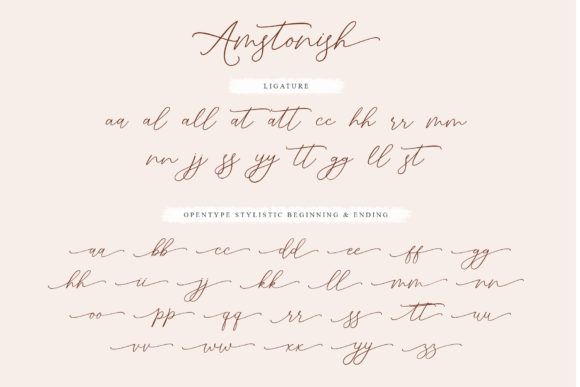 Amstonish
LIGATURE
aa al all at att cc hh rr mm
nn jj ss yy tt gg ll st
OPENTYPE STYLISTIC BEGINNING & ENDING
aa bb cc dd ee ff gg
hh ii jj kk ll mm nn
oo pp qq rr ss tt uu
vv ww xx yy zz